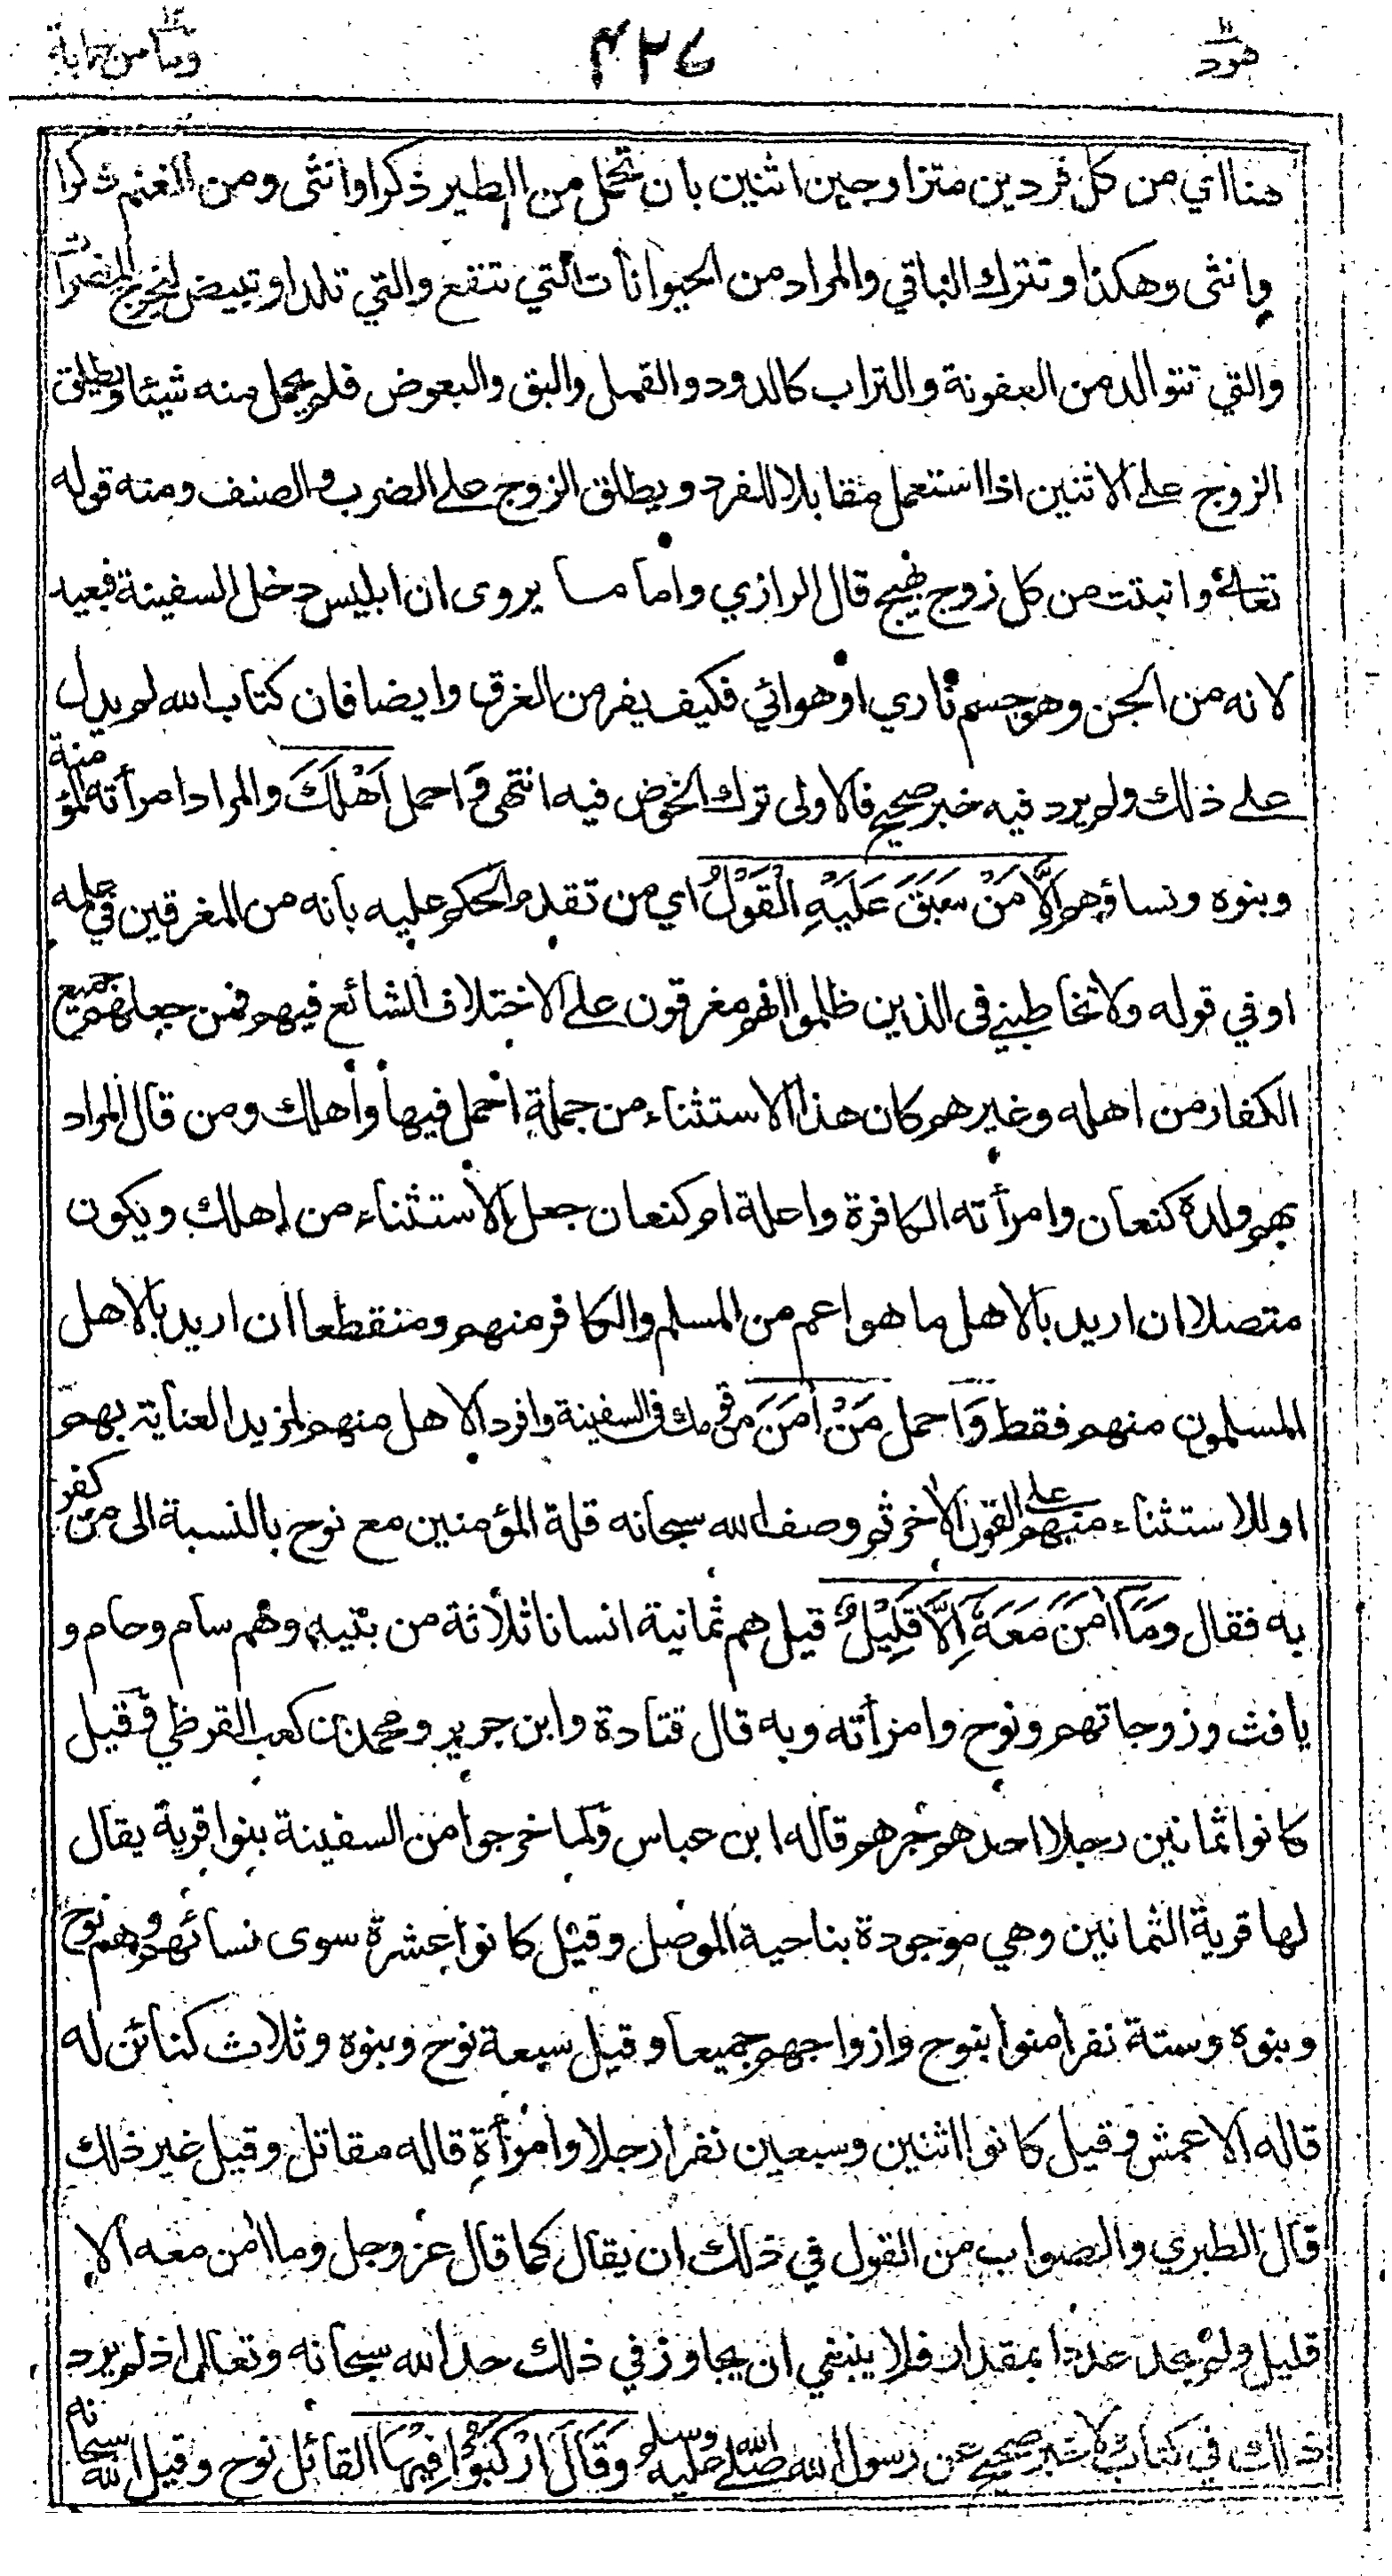 هود ١١
٤٢٦
وما من دابة ١٢
هنا اي من كل فردين متزاوجين اثنين بان تحمل من الطير ذكرا وانثى ومن الغنم ذكرا
وانثى وهكذا وتترك الباقي والمراد من الحيوانات التي تنفع والتي تلد او تبيض ليخرج المضرات
والتي تتوالد من العفونة والتراب كالدود والقمل والبق والبعوض فلم يحمل منه شيئا ويطلق
الزوج على الاثنين اذا استعمل مقابلا للفرد ويطلق الزوج على الضرب والصنف ومنه قوله
تعالى وانبتت من كل زوج بهيج قال الرازي واما ما يروى ان ابليس دخل السفينة فبعيد
لانه من الجن وهو جسم ناري او هوائي فكيف يفر من الغرق وايضا فان كتاب الله لم يدل
على ذلك ولم يرد فيه خبر صحيح فالاولى ترك الخوض فيه انتهى وَ احمل اَهْلَكَ والمراد امرأته المؤمنة
وبنوه ونساؤهم اِلَّا مَنْ سَبَقَ عَلَيْهِ الْقَوْلُ اي من تقدم الحكم عليه بانه من المغرقين في علمه
او في قوله ولا تخاطبني في الذين ظلموا انهم مغرقون على الاختلاف الشائع فيهم فمن جعلهم جميع
الكفار من اهله وغيرهم كان هذا الاستثناء من جملة احمل فيها واهلك ومن قال المراد
بهم ولده كنعان وامرأته الكافرة واحلة ام كنعان جعل الاستثناء من اهلك ويكون
متصلا ان اريد بالاهل ما هو اعم من المسلم والكافر منهم ومنقطعا ان اريد بالاهل
المسلمون منهم فقط وَ احمل مَنْ اٰمَنَ من قومك في السفينة وافرد الاهل منهم لمزيد العناية بهم
او للاستثناء منهم على القول الاخر ثم وصف الله سبحانه قلة المؤمنين مع نوح بالنسبة الى من كفر
به فقال وَمَآ اٰمَنَ مَعَهٗ اِلَّا قَلِيْلٌ قيل هم ثمانية انسانا ثلاثة من بنيه وهم سام وحام و
يافث وزوجاتهم ونوح وامرأته وبه قال قتادة وابن جرير ومحمد بن كعب القرظي وقيل
كانوا ثمانين رجلا احدهم جرهم قاله ابن عباس ولما خرجوا من السفينة بنوا قرية يقال
لها قرية الثمانين وهي موجودة بناحية الموصل وقيل كانوا عشرة سوى نسائهم وهم نوح
وبنوه وستة نفر امنوا بنوح وازواجهم جميعا وقيل سبعة نوح وبنوه وثلاث كنائن له
قاله الاعمش وقيل كانوا اثنين وسبعين نفرا رجلا وامرأة قاله مقاتل وقيل غير ذلك
قال الطبري والصواب من القول في ذلك ان يقال كما قال عز وجل وما امن معه الا
قليل ولم يحد عددا بمقدار فلا ينبغي ان يجاوز في ذلك حد الله سبحانه وتعالى اذ لم يرد
ذلك في كتاب ولا خبر صحيح عن رسول الله صلى الله عليه وسلم وَقَالَ ارْكَبُوْا فِيْهَا القائل نوح وقيل الله سبحانه